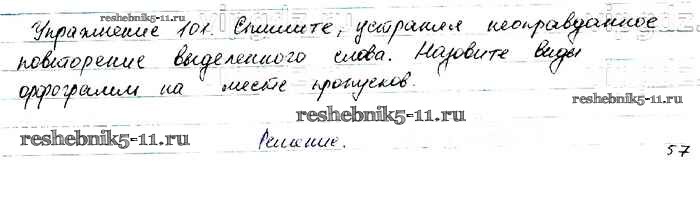 Упражнение 101. Спишите, устраняя неоправданное
reshebnik5-11.ru
повторение выделенного слова. Назовите виды
орфограмм на месте пропусков.
reshebnik5-11.ru
reshebnik5-11.ru
reshebnik5-11.ru
Решение.
57